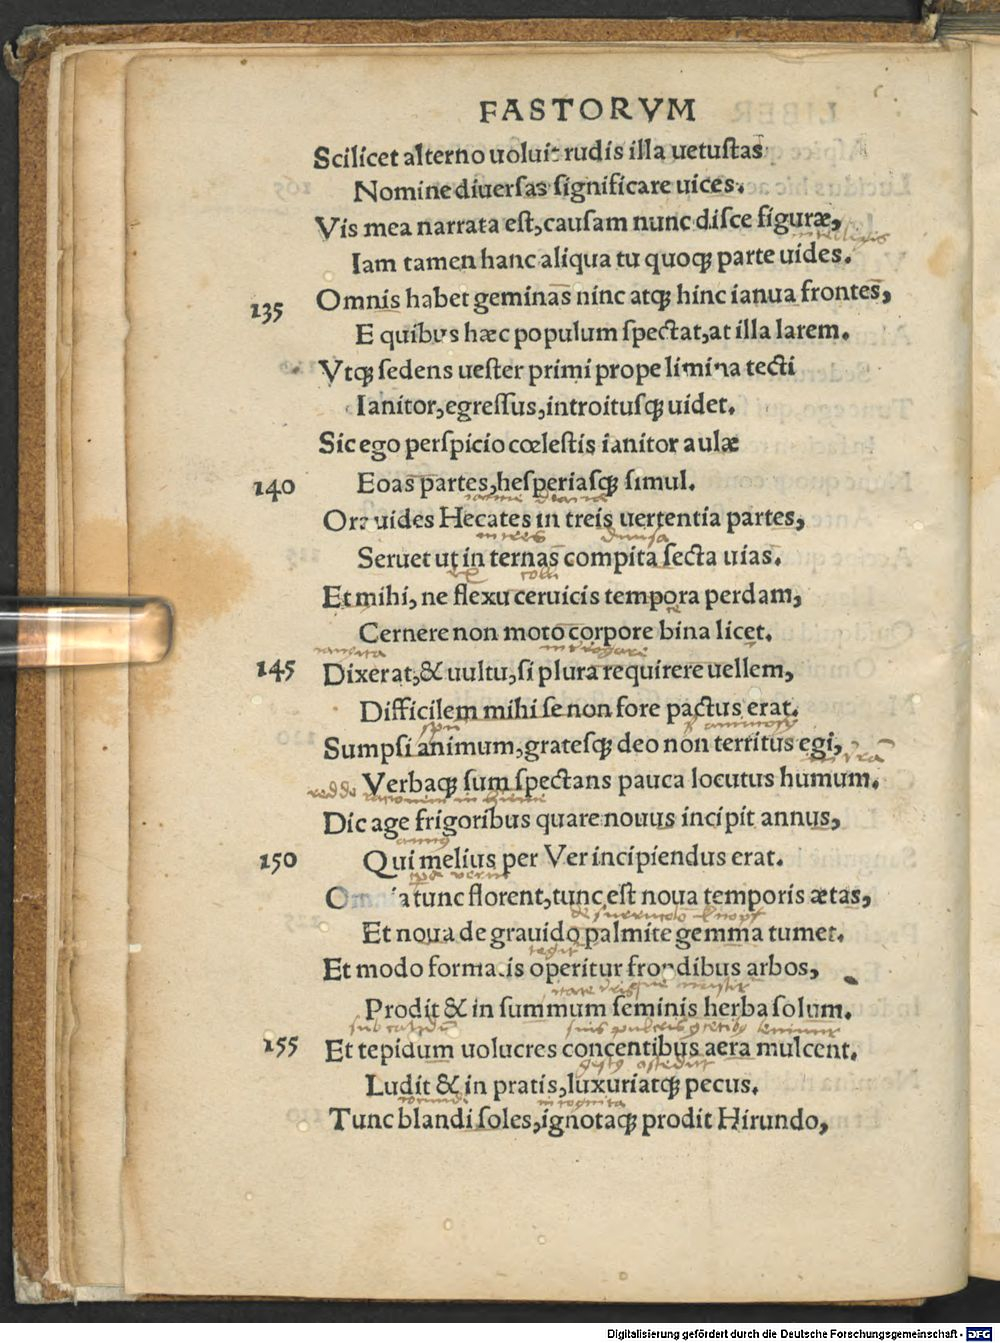 FASTORVM
Scilicet alterno uoluit rudis illa uetustas
Nomine diuersas significare uices.
Vis mea narrata est, causam nunc disce figuræ,
intelligis
Iam tamen hanc aliqua tu quoqꝫ parte uides.
135 Omnis habet geminas ninc atqꝫ hinc ianua frontes,
E quibus hæc populum spectat, at illa larem.
Vtqꝫ sedens uester primi prope limina tecti
Ianitor, egressus, introitusqꝫ uidet.
Sic ego perspicio cœlestis ianitor aulæ
140 Eoas partes, hesperiasqꝫ simul.
Ora uides Hecates in treis uertentia partes,
in tres diuisa
Seruet ut in ternas compita secta uias.
Et mihi, ne flexu ceruicis tempora perdam,
Cernere non moto corpore bina licet.
interrogare
145 Dixerat, & uultu, si plura requirere uellem,
Difficilem mihi se non fore pactus erat.
Sumpsi animum, gratesqꝫ deo non territus egi,
Verbaqꝫ sum spectans pauca locutus humum.
redde rationem
Dic age frigoribus quare nouus incipit annus,
150 Qui melius per Ver incipiendus erat.
Omnia tunc florent, tunc est noua temporis ætas,
Et noua de grauido palmite gemma tumet.
tegit
Et modo formatis operitur frondibus arbos,
Prodit & in summum seminis herba solum.
155 Et tepidum uolucres concentibus aera mulcent,
Ludit & in pratis, luxuriatqꝫ pecus.
iocundi incognita
Tunc blandi soles, ignotaqꝫ prodit Hirundo,
Digitalisierung gefördert durch die Deutsche Forschungsgemeinschaft - DFG